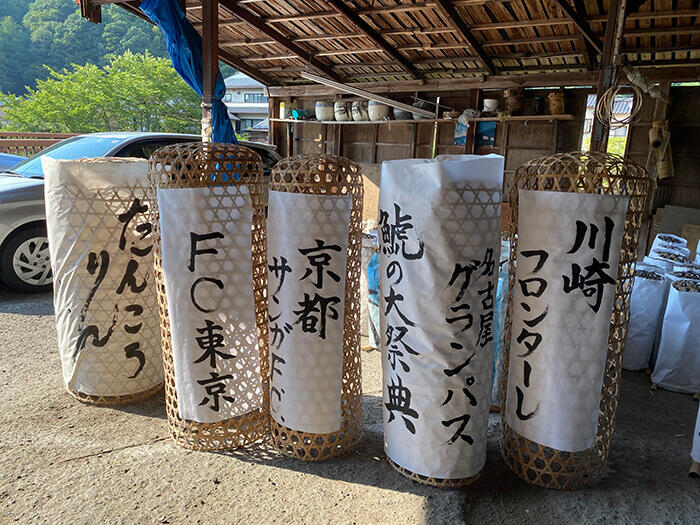 たんころ
りん
FC東京
京都
サンガF.C.
名古屋
グランパス
鯱の大祭典
川崎
フロンターレ